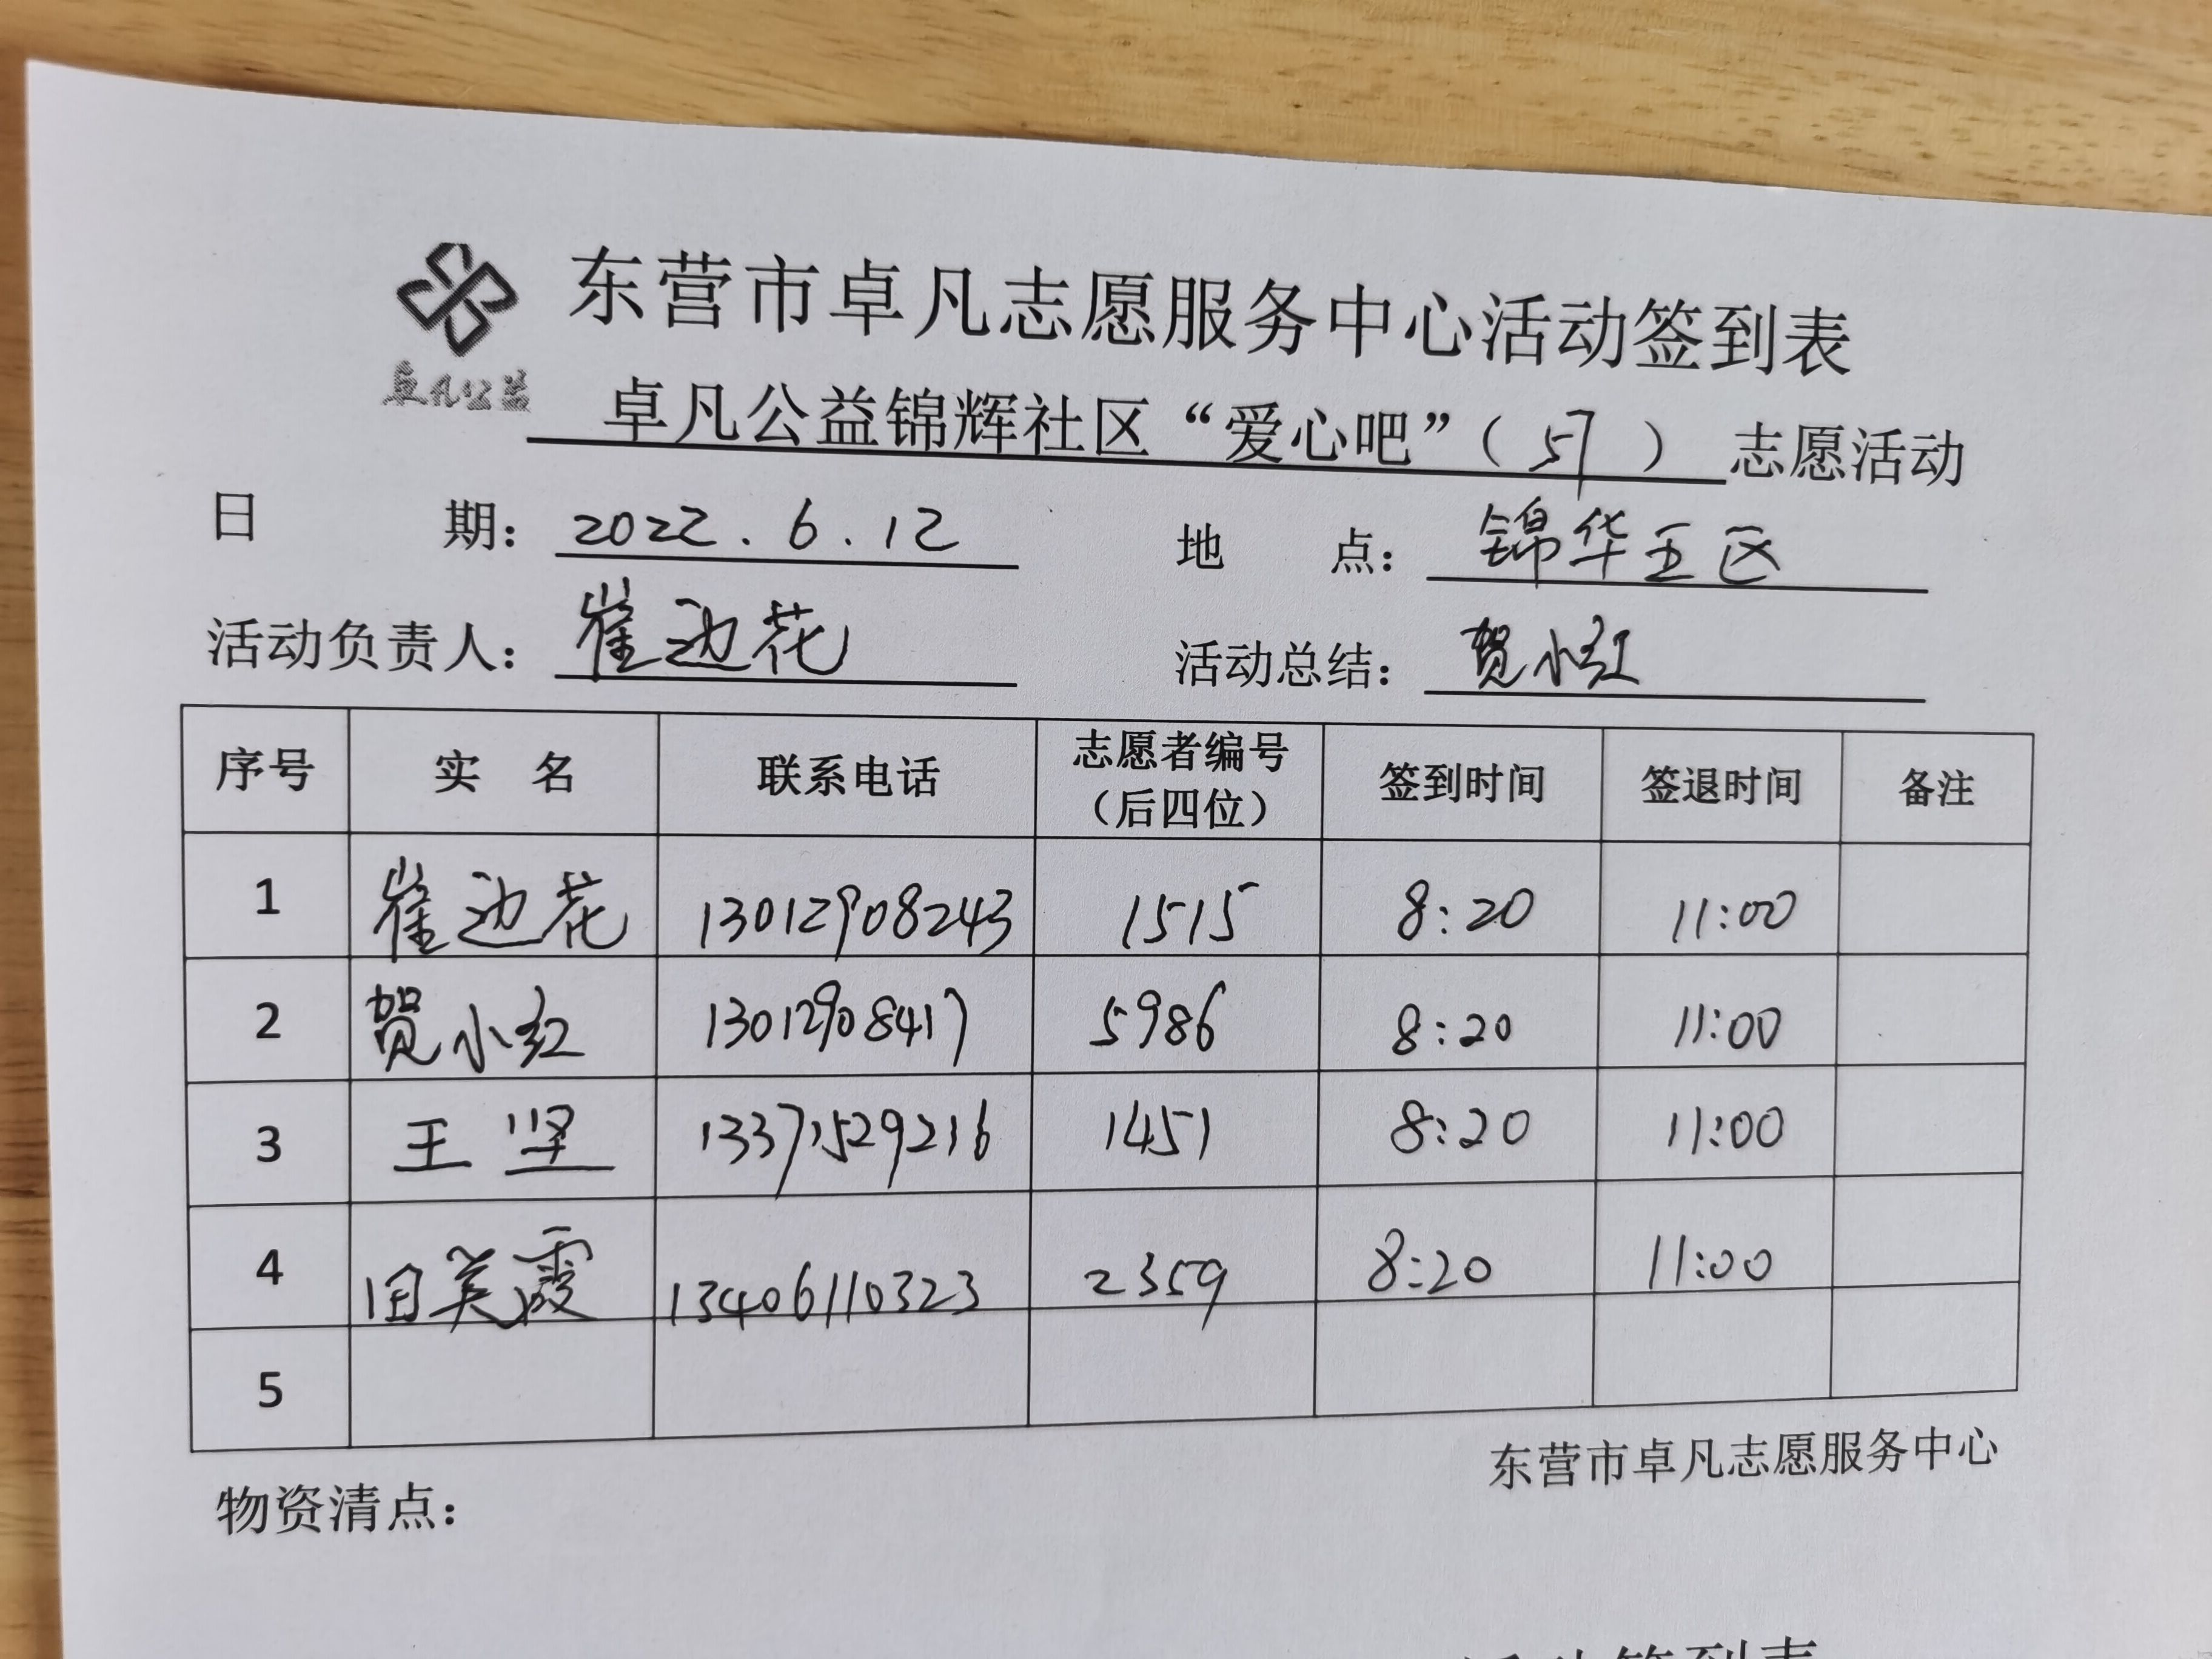 东营市卓凡志愿服务中心活动签到表
卓凡公益
卓凡公益锦辉社区“爱心吧”(57)志愿活动
日 期: 2022.6.12 地 点: 锦华五区
活动负责人: 崔边花 活动总结: 贺小红
序号 实 名 联系电话 志愿者编号(后四位) 签到时间 签退时间 备注
1 崔边花 13012908243 1515 8:20 11:00
2 贺小红 13012908417 5986 8:20 11:00
3 王坚 13371529216 1451 8:20 11:00
4 田美霞 13406110323 2359 8:20 11:00
5
东营市卓凡志愿服务中心
物资清点:
活动签到表